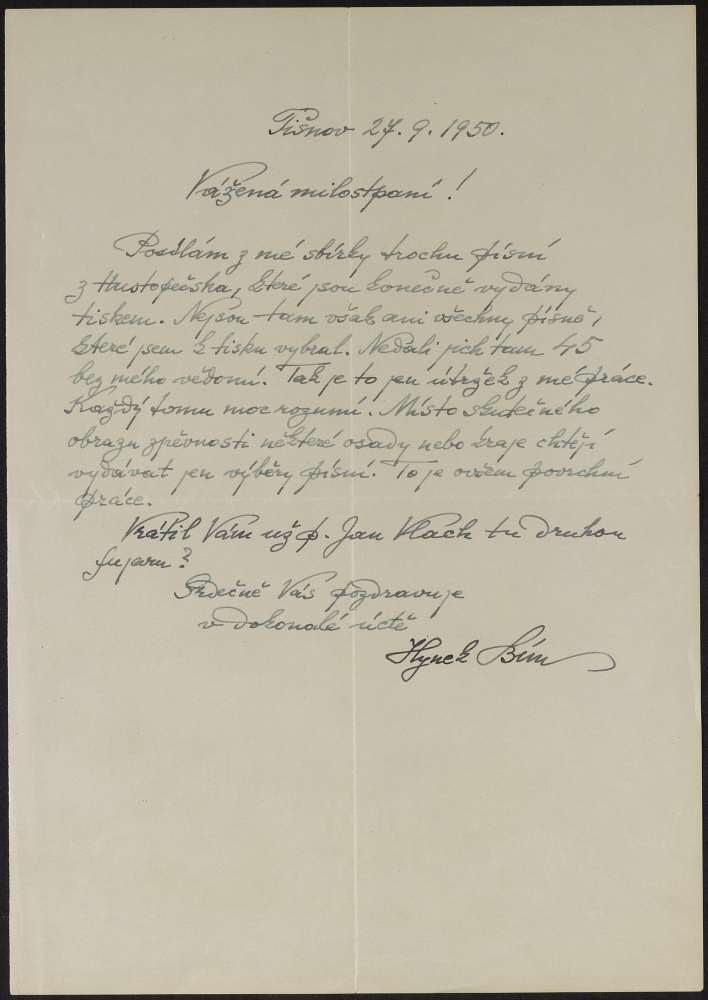 Tišnov 27. 9. 1950.
Vážená milostpaní!
Posílám z mé sbírky trochu písní
z Hustopečska, které jsou konečně vydány
tiskem. Nejsou tam však ani všechny písně,
které jsem k tisku vybral. Nedali jich tam 45
bez mého vědomí. Tak je to jen útržek z mé práce.
Každý tomu moc rozumí. Místo skutečného
obrazu zpěvnosti některé osady nebo kraje chtějí
vydávat jen výběry písní. To je ovšem povrchní
práce.
Vrátil Vám už p. Jan Vlach tu druhou
fujaru?
Srdečně Vás pozdravuje
v dokonalé úctě
Hynek Bím